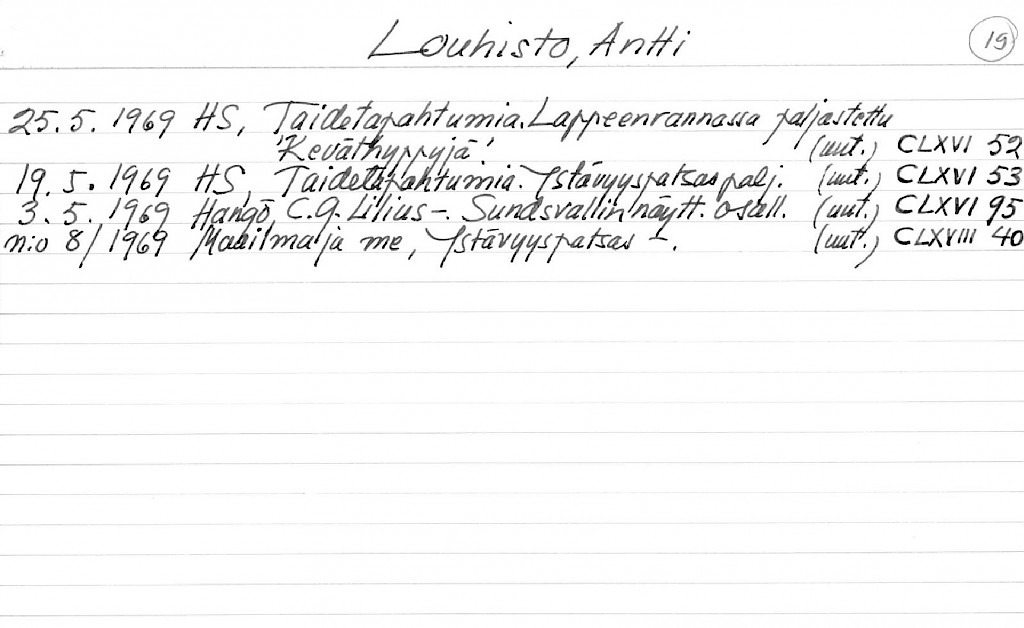 Louhisto, Antti
19
25.5.1969 HS, Taidetapahtumia. Lappeenrannassa paljastettu
'Keväthyppyjä'. (uut.) CLXVI 52
19.5.1969 HS, Taidetapahtumia. Ystävyyspatsas palj. (uut.) CLXVI 53
3.5.1969 Hangö, C.G. Lilius -. Sundsvallin näytt. osall. (uut.) CLXVI 95
n:o 8/1969 Maailma ja me, Ystävyyspatsas -. (uut.) CLXVIII 40